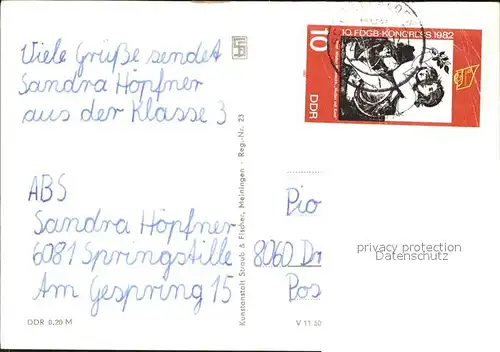 Viele Grüße sendet
Sandra Höpfner
aus der Klasse 3
10. FDGB-KONGRESS 1982
10
DDR
ABS
Sandra Höpfner
6081 Springstille
Am Gespring 15
Kunstanstalt Straub & Fischer, Meiningen - Reg.-Nr. 23
Pio
8060 Dr
Pos
privacy protection
Datenschutz
DDR 0,20 M
V 11 50